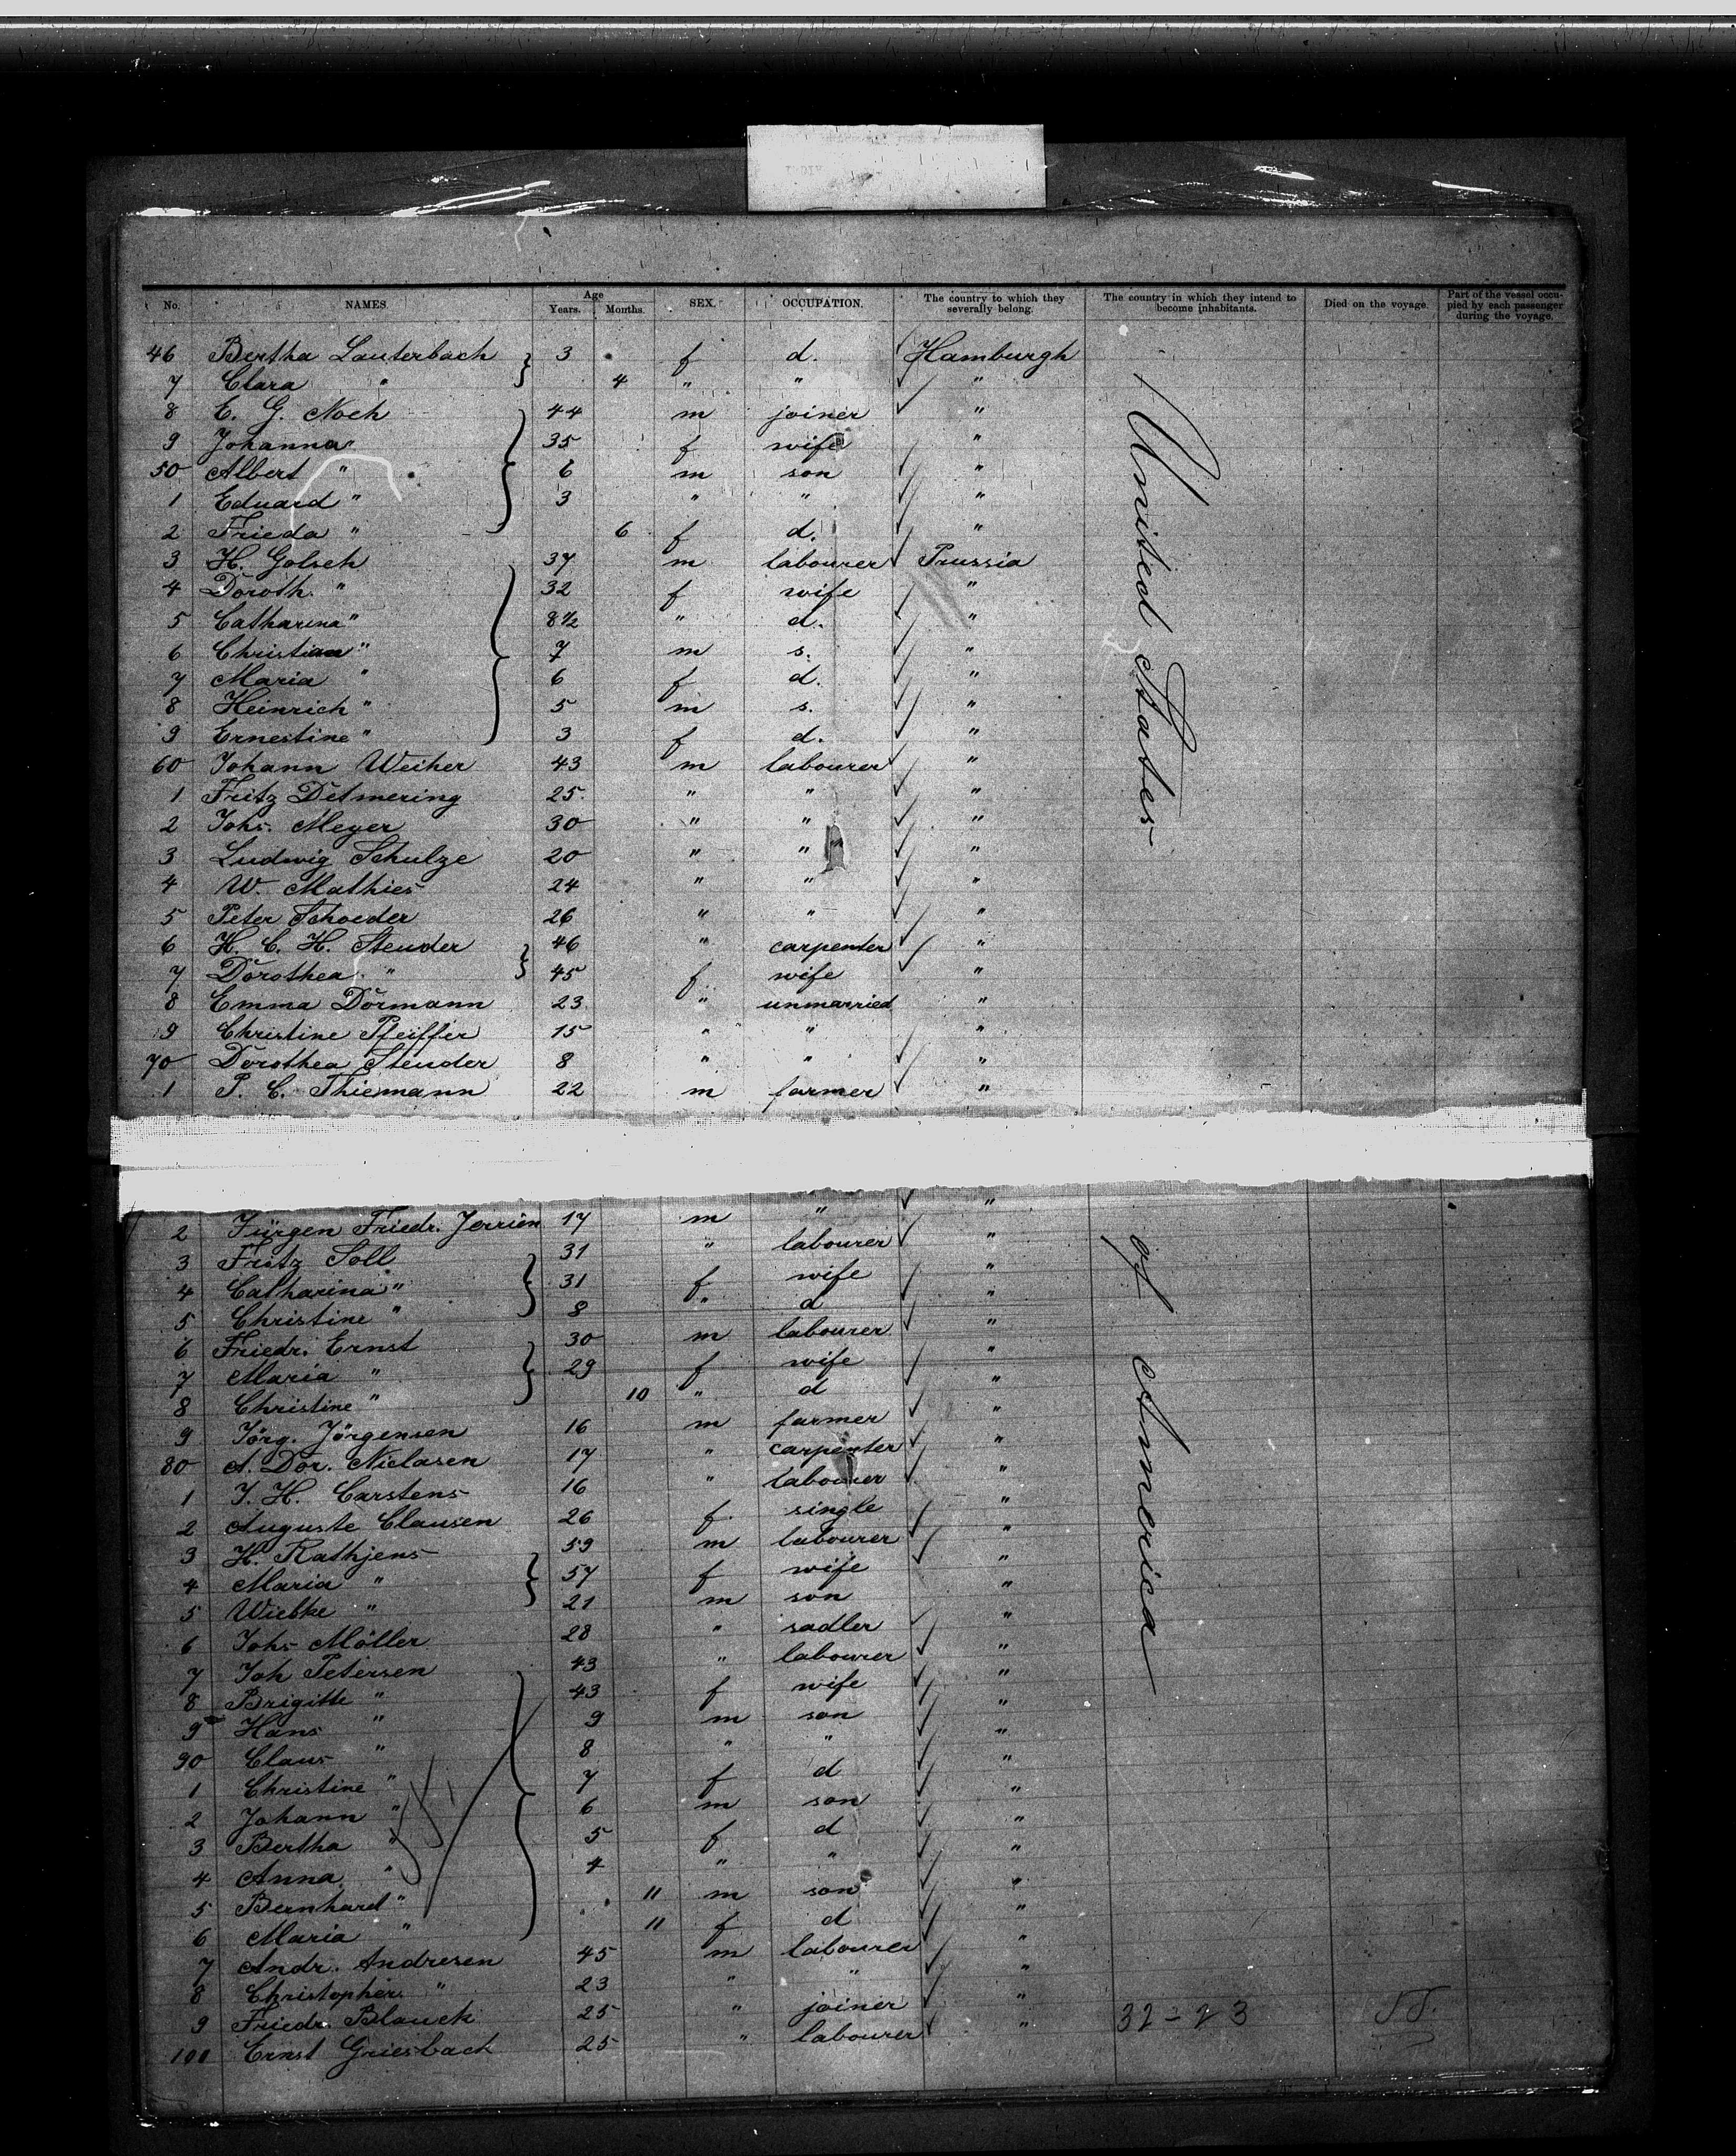 No. NAMES. Age Years. Months. SEX. OCCUPATION. The country to which they severally belong. The country in which they intend to become inhabitants. Died on the voyage. Part of the vessel occupied by each passenger during the voyage.
46 Bertha Lauterbach 3 f d. Hamburgh
7 Clara " 4 " " "
8 E. G. Noch 44 m joiner "
9 Johanna " 35 f wife "
50 Albert " 6 m son "
1 Eduard " 3 " " "
2 Frieda " 6 f d. "
3 H. Golsch 37 m labourer Prussia
4 Doroth. " 32 f wife "
5 Catharina " 8 1/2 " d. "
6 Christian " 7 m s. "
7 Maria " 6 f d. "
8 Heinrich " 5 m s. "
9 Ernestine " 3 f d. "
60 Johann Weiher 43 m labourer "
1 Fritz Detmering 25 " " "
2 Johs. Meyer 30 " " "
3 Ludwig Schulze 20 " " "
4 W. Mathies 24 " " "
5 Peter Schoeder 26 " " "
6 H. C. H. Steuder 46 " carpenter "
7 Dorothea " 45 f wife "
8 Emma Dörmann 23 " unmarried "
9 Christine Pfeiffer 15 " " "
70 Dorothea Steuder 8 " " "
1 P. C. Thiemann 22 m farmer "
United States
2 Jürgen Friedr. Jerrien 17 m " "
3 Fritz Soll 31 " labourer "
4 Catharina " 31 f wife "
5 Christine " 8 " d "
6 Friedr. Ernst 30 m labourer "
7 Maria " 29 f wife "
8 Christine " 10 " d "
9 Jörg. Jörgensen 16 m farmer "
80 A. Dor. Niclasen 17 " carpenter "
1 J. H. Carstens 16 " labourer "
2 Auguste Clausen 26 f single "
3 H. Rathjens 59 m labourer "
4 Maria " 57 f wife "
5 Wiebke " 21 m son "
6 Johs Möller 28 " sadler "
7 Joh Petersen 43 " labourer "
8 Brigitte " 43 f wife "
9 Hans " 9 m son "
90 Claus " 8 " " "
1 Christine " 7 f d "
2 Johann " 6 m son "
3 Bertha " 5 f d "
4 Anna " 4 " " "
5 Bernhard " 11 m son "
6 Maria " 11 f d "
7 Andr. Andresen 45 m labourer "
8 Christopher " 23 " " "
9 Friedr. Blauck 25 " joiner "
101 Ernst Griesbach 25 " labourer "
of America
32-23